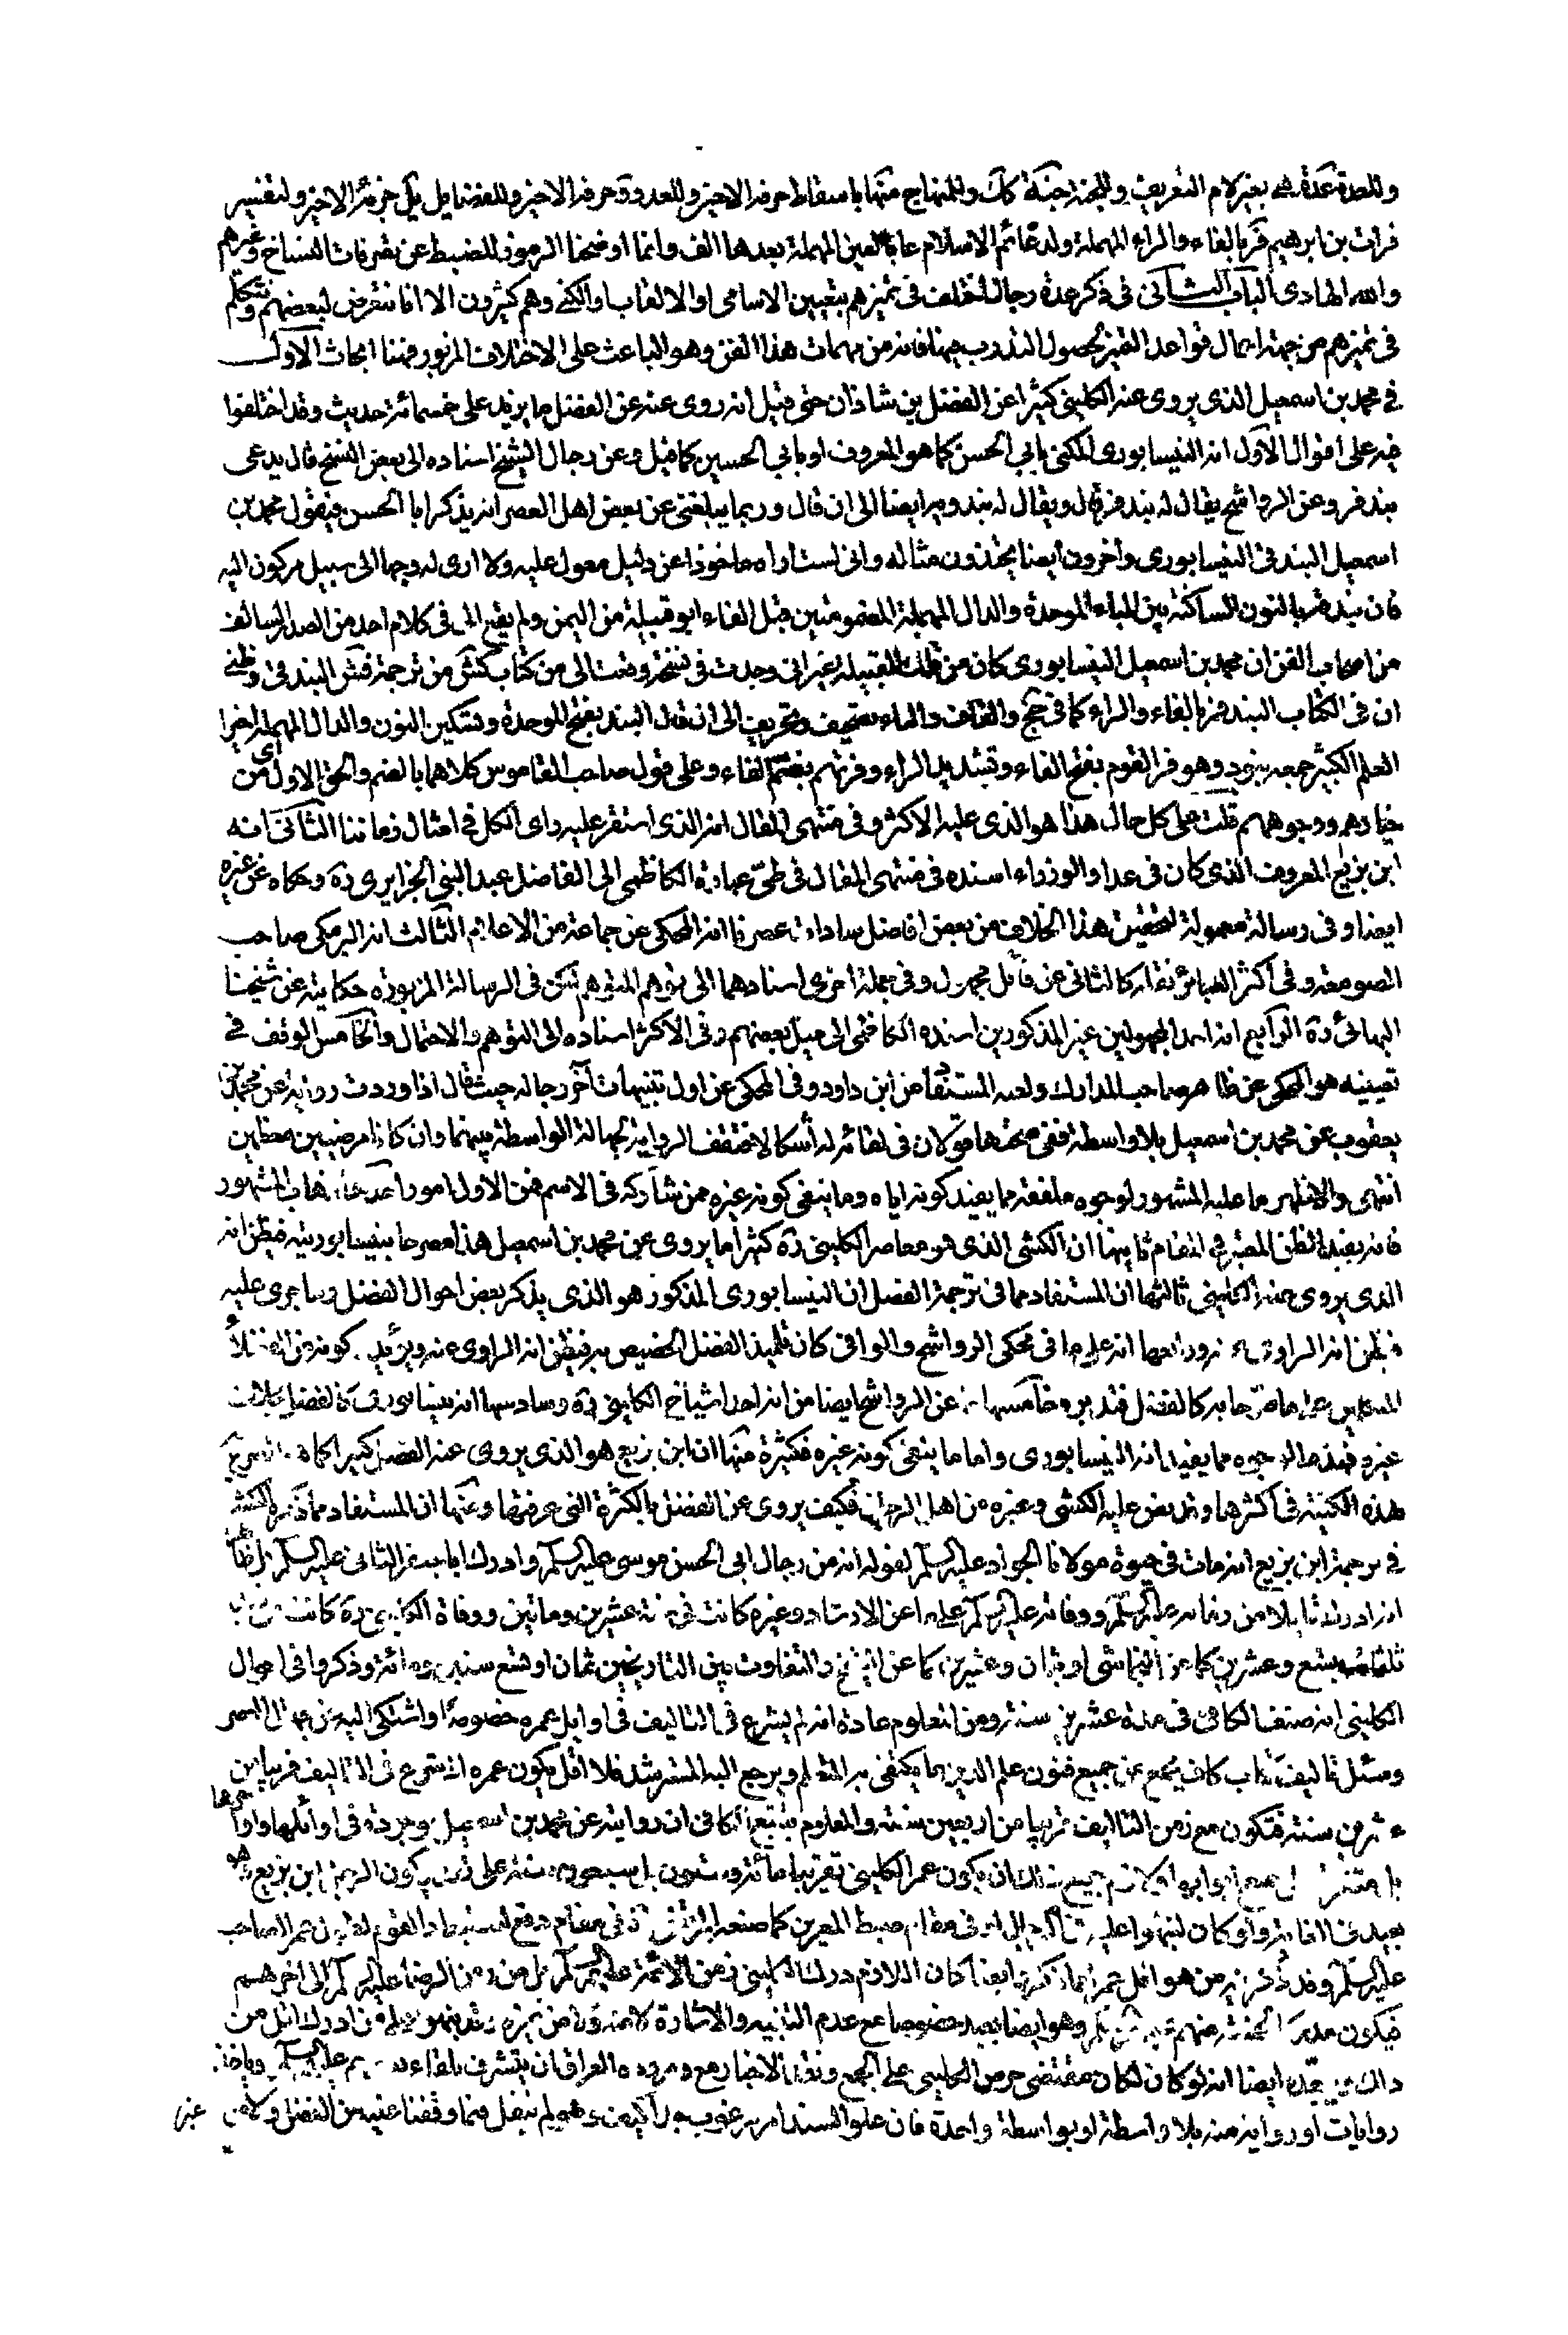 وللعدة عدة بغير لام التعريف وللجنة جنة كك وللمنهاج منها باسقاط حرفه الاخير وللعدد و حرفه الاخير وللفضايل يل جزئه الاخير ولتفسير
فرات بن ابرهيم فر بالفاء والراء المهملة ولدعائم الاسلام عا بالعين المهملة بعدها الف وانما اوضحنا الرموز للضبط عن تصرفات النساخ وغيرهم
والله الهادى الباب الثانى فى ذكر عدة رجال اختلف فى تميزهم بتعيين الاسامى او الالقاب او الكنى وهم كثيرون الا انا نتعرض لبعضهم ونتكلم
فى تميزهم من جهة اعمال قواعد التميز لحصول التدرب فيها فانه من مهمات هذا الفن وهو الباعث على الاختلاف المزبور فهنا ابحاث الاول
فى محمد بن اسمعيل الذى يروى عنه الكلينى كثيرا عن الفضل بن شاذان حتى قيل انه روى عنه عن الفضل ما يزيد على خمسمائة حديث وقد اختلفوا
فيه على اقوال الاول انه النيسابورى المكنى بابى الحسن كما هو المعروف او بابى الحسين كما قيل وعن رجال الشيخ اسناده الى بعض النسخ قال يدعى
بندفر وعن الرواشح يقال له بندفر قال ويقال له بندويه ايضا الى ان قال وربما يبلغنى عن بعض اهل العصر انه يذكر ابا الحسن فيقول محمد بن
اسمعيل البندقى النيسابورى وآخرون ايضا يحتذون مثاله وانى لست اراه ماخوذا عن دليل معول عليه ولا ارى له وجها الى سبيل مركون اليه
فان بندقه بالنون الساكنة بين الباء الموحدة والدال المهملة المضمومتين قبل القاف ابو قبيلة من اليمن ولم يقع الى فى كلام احد من الصدر السالف
من اصحاب الفن ان محمد بن اسمعيل النيسابورى كان من تلك القبيلة غير انى وجدت فى نسخة وقعت الى من كتاب كش من ترجمة فش البندقى وظنى
ان فى الكتاب البندفر بالفاء والراء كما فى جخ والقاف والياء تصحيف وتحريف الى ان قال البند بفتح الموحدة وتسكين النون والدال المهملة اخيرا
العلم الكبير جمعه بنود وهو فر القوم بفتح الفاء وتشديد الراء وفرتهم بضم الفاء وعلى قول صاحب القاموس كلاهما بالضم والحق الاول اى من
خيارهم ووجوههم قلت على كل حال هذا هو الذى عليه الاكثر وفى منتهى المقال انه الذى استقر عليه راى الكل فى امثال زماننا الثانى انه
ابن بزيع المعروف الذى كان فى عداد الوزراء اسنده فى منتهى المقال فى طى عبارة الكاظمى الى الفاضل عبد النبى الجزايرى ره وحكاه عن غيره
ايضا وفى رسالة معمولة لتحقيق هذا الخلاف من بعض افاضل سادات عصرنا انه المحكى عن جماعة من الاعلام الثالث انه البرمكى صاحب
الصومعة وفى اكثر العبائر نقله كالثانى عن قائل مجهول وفى جملة اخرى اسنادهما الى توهم المتوهم لكن فى الرسالة المزبورة حكايته عن شيخنا
البهائى ره الرابع انه احد المجهولين غير المذكورين اسنده الكاظمى الى ميل بعضهم وفى الاكثر اسناده الى التوهم والاحتمال والخامس الوقف فى
تعيينه هو المحكى عن ظاهر صاحب المدارك ولعله المستفاد من ابن داود وفى المحكى عن اول تنبيهات آخر رجاله حيث قال اذا وردت رواية عن محمد بن
يعقوب عن محمد بن اسمعيل بلا واسطة ففى صحتها قولان فى لقائه له اشكالا فتقف الرواية لجهالة الواسطة بينهما وان كانا مرضيين معظمين
انتهى والاظهر ما عليه المشهور لوجوه ملفقة مما يفيد كونه اياه وما ينفى كونه غيره ممن شاركه فى الاسم فمن الاول امور احدها ذهاب المشهور
فانه يفيد الظن المعتبر فى المقام ثانيها ان الكشى الذى هو معاصر الكلينى ره كثيرا ما يروى عن محمد بن اسمعيل هذا مصرحا بنيسابوريته فيظن انه
الذى يروى عنه الكلينى ثالثها ان المستفاد مما فى ترجمة الفضل ان النيسابورى المذكور هو الذى يذكر بعض احوال الفضل وما جرى عليه
فيظن انه الراوى عنه ورابعها انه على ما فى محكى الرواشح والوافى كان تلميذ الفضل الخصيص به فيظن انه الراوى عنه ويؤيده كونه من الفضلاء
المتكلمين على ما صرحا به كالفضل فتدبر وخامسها عن الرواشح ايضا من انه احد اشياخ الكلينى ره وسادسها انه نيسابورى كالفضل بخلاف
غيره فهذه الوجوه مما يفيد انه النيسابورى واما ما ينفى كونه غيره فكثيرة منها ان ابن بزيع هو الذى يروى عنه الفضل كثيرا كما
هذه الكنية فى اكثرها وقد نص عليه الكشى وغيره من اهل الرجال فكيف يروى عن الفضل بالكثرة التى عرفتها ومنها ان المستفاد مما ذكره الكشى
فى ترجمة ابن بزيع انه مات فى حيوة مولانا الجواد عليه السلم لقوله انه من رجال ابى الحسن موسى عليه السلم وادرك ابا جعفر الثانى عليه السلم
انه ادرك قليلا من زمانه عليه السلم ووفاته عليه السلم على ما عن الارشاد وغيره كانت فى سنة عشرين ومائتين ووفاة الكلينى ره كانت
ثلثمائة وتسع وعشرين كما عن النجاشى او ثمان وعشرين كما عن الشيخ والتفاوت بين التاريخين ثمان او تسع سنين ومائة وذكروا فى احوال
الكلينى انه صنف الكافى فى مدة عشرين سنة ومن المعلوم عادة انه لم يشرع فى التاليف فى اوايل عمره خصوصا
ومثل تاليف كتاب كاف يجمع من جميع فنون علم الدين ما يكتفى به المتعلم ويرجع اليه المسترشد فلا اقل يكون عمره اذ شرع فى التاليف قريبا من
عشرين سنة فتكون مع زمن التاليف قريبا من اربعين سنة والمعلوم بتتبع الكافى ان روايته عن محمد بن اسمعيل موجودة فى اوائلها واواخرها
ان يكون عمر الكلينى تقريبا مائة و
بعيد فى الغاية ولو كان لنبهوا عليه فى مقام ضبط المعمرين كما صنعه فى مقام دفع استبعاد القوم لطول عمر الصاحب
عليه السلم وقد ذكر من هو اقل عمرا مما ذكرنا ايضا كان اللازم درك الكلينى زمن الائمة عليهم السلم من زمن الرضا عليه السلم الى اخرهم
فيكون وهو ايضا بعيد خصوصا مع عدم التنبيه والاشارة من غيره وقد نبهوا على من ادرك اقل من
ذلك ايضا انه لو كان لكان مقتضى حرص الكلينى على الجمع ونقل الاخبار مع وروده العراق ان يتشرف بلقاء
روايات او رواية منه بلا واسطة او بواسطة واحدة فان علو السند امر مرغوب وهو لم ينقل فيما وقفنا عليه من الفضل و
غير